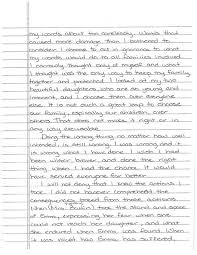 my words about him carelessly. Words that
caused more damage than I bothered to
consider. I choose to act in ignorance to what
my words would do to all families involved.
I normally thought only of myself and what
I thought was the only way to keep my family
together and protected. I looked at my two
beautiful daughters who are so young and
innocent, and I choose them over everyone
else. Is it not such a great way to choose
our family, expressing our ambition, over
others. That does not make it right or in
any way excusable.
Doing the wrong thing no matter how well
intended, is still wrong. I was wrong and it
is wrong what I have done. I wish I had
been braver and done the right
thing when I had the chance. It would
have served everyone far better.
I will not deny that I knew the actions I
took. I did not however comprehend the
consequences bread from those actions.
When took the stand and spoke
of Emma, expressing her fear when she
could not reach her daughter, and what
she endured when Emma was found. When
it was stated how Emma has suffered,